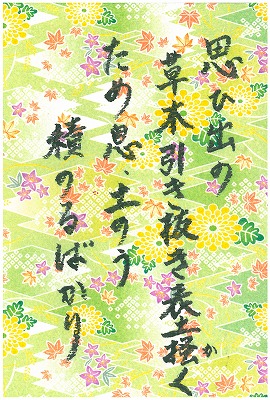 思ひ出の
草木引き抜き表土掻く
か
ため息、土のう
積のるばかり